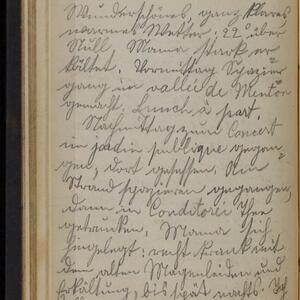 Wunderschönes, ganz klares
warmes Wetter: 22° über
Null, Mama stark er
kältet. Vormittag Spazier
gang im vallée de Menton
gemacht, Lunch à part.
Nachmittag zum Concert
im jardin publique gegan
gen, dort gesessen. Am
Strand spazieren gegangen,
dann in Conditorei Thee
getrunken, Mama sich
hingelegt: recht krank mit
dem alten Magenleiden und
Erkältung, bis spät nachts. Ich